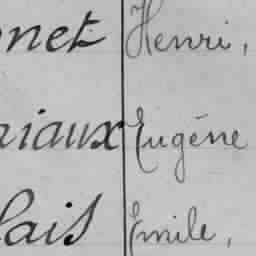 net Henri,
riaux Eugène
lais Emile,